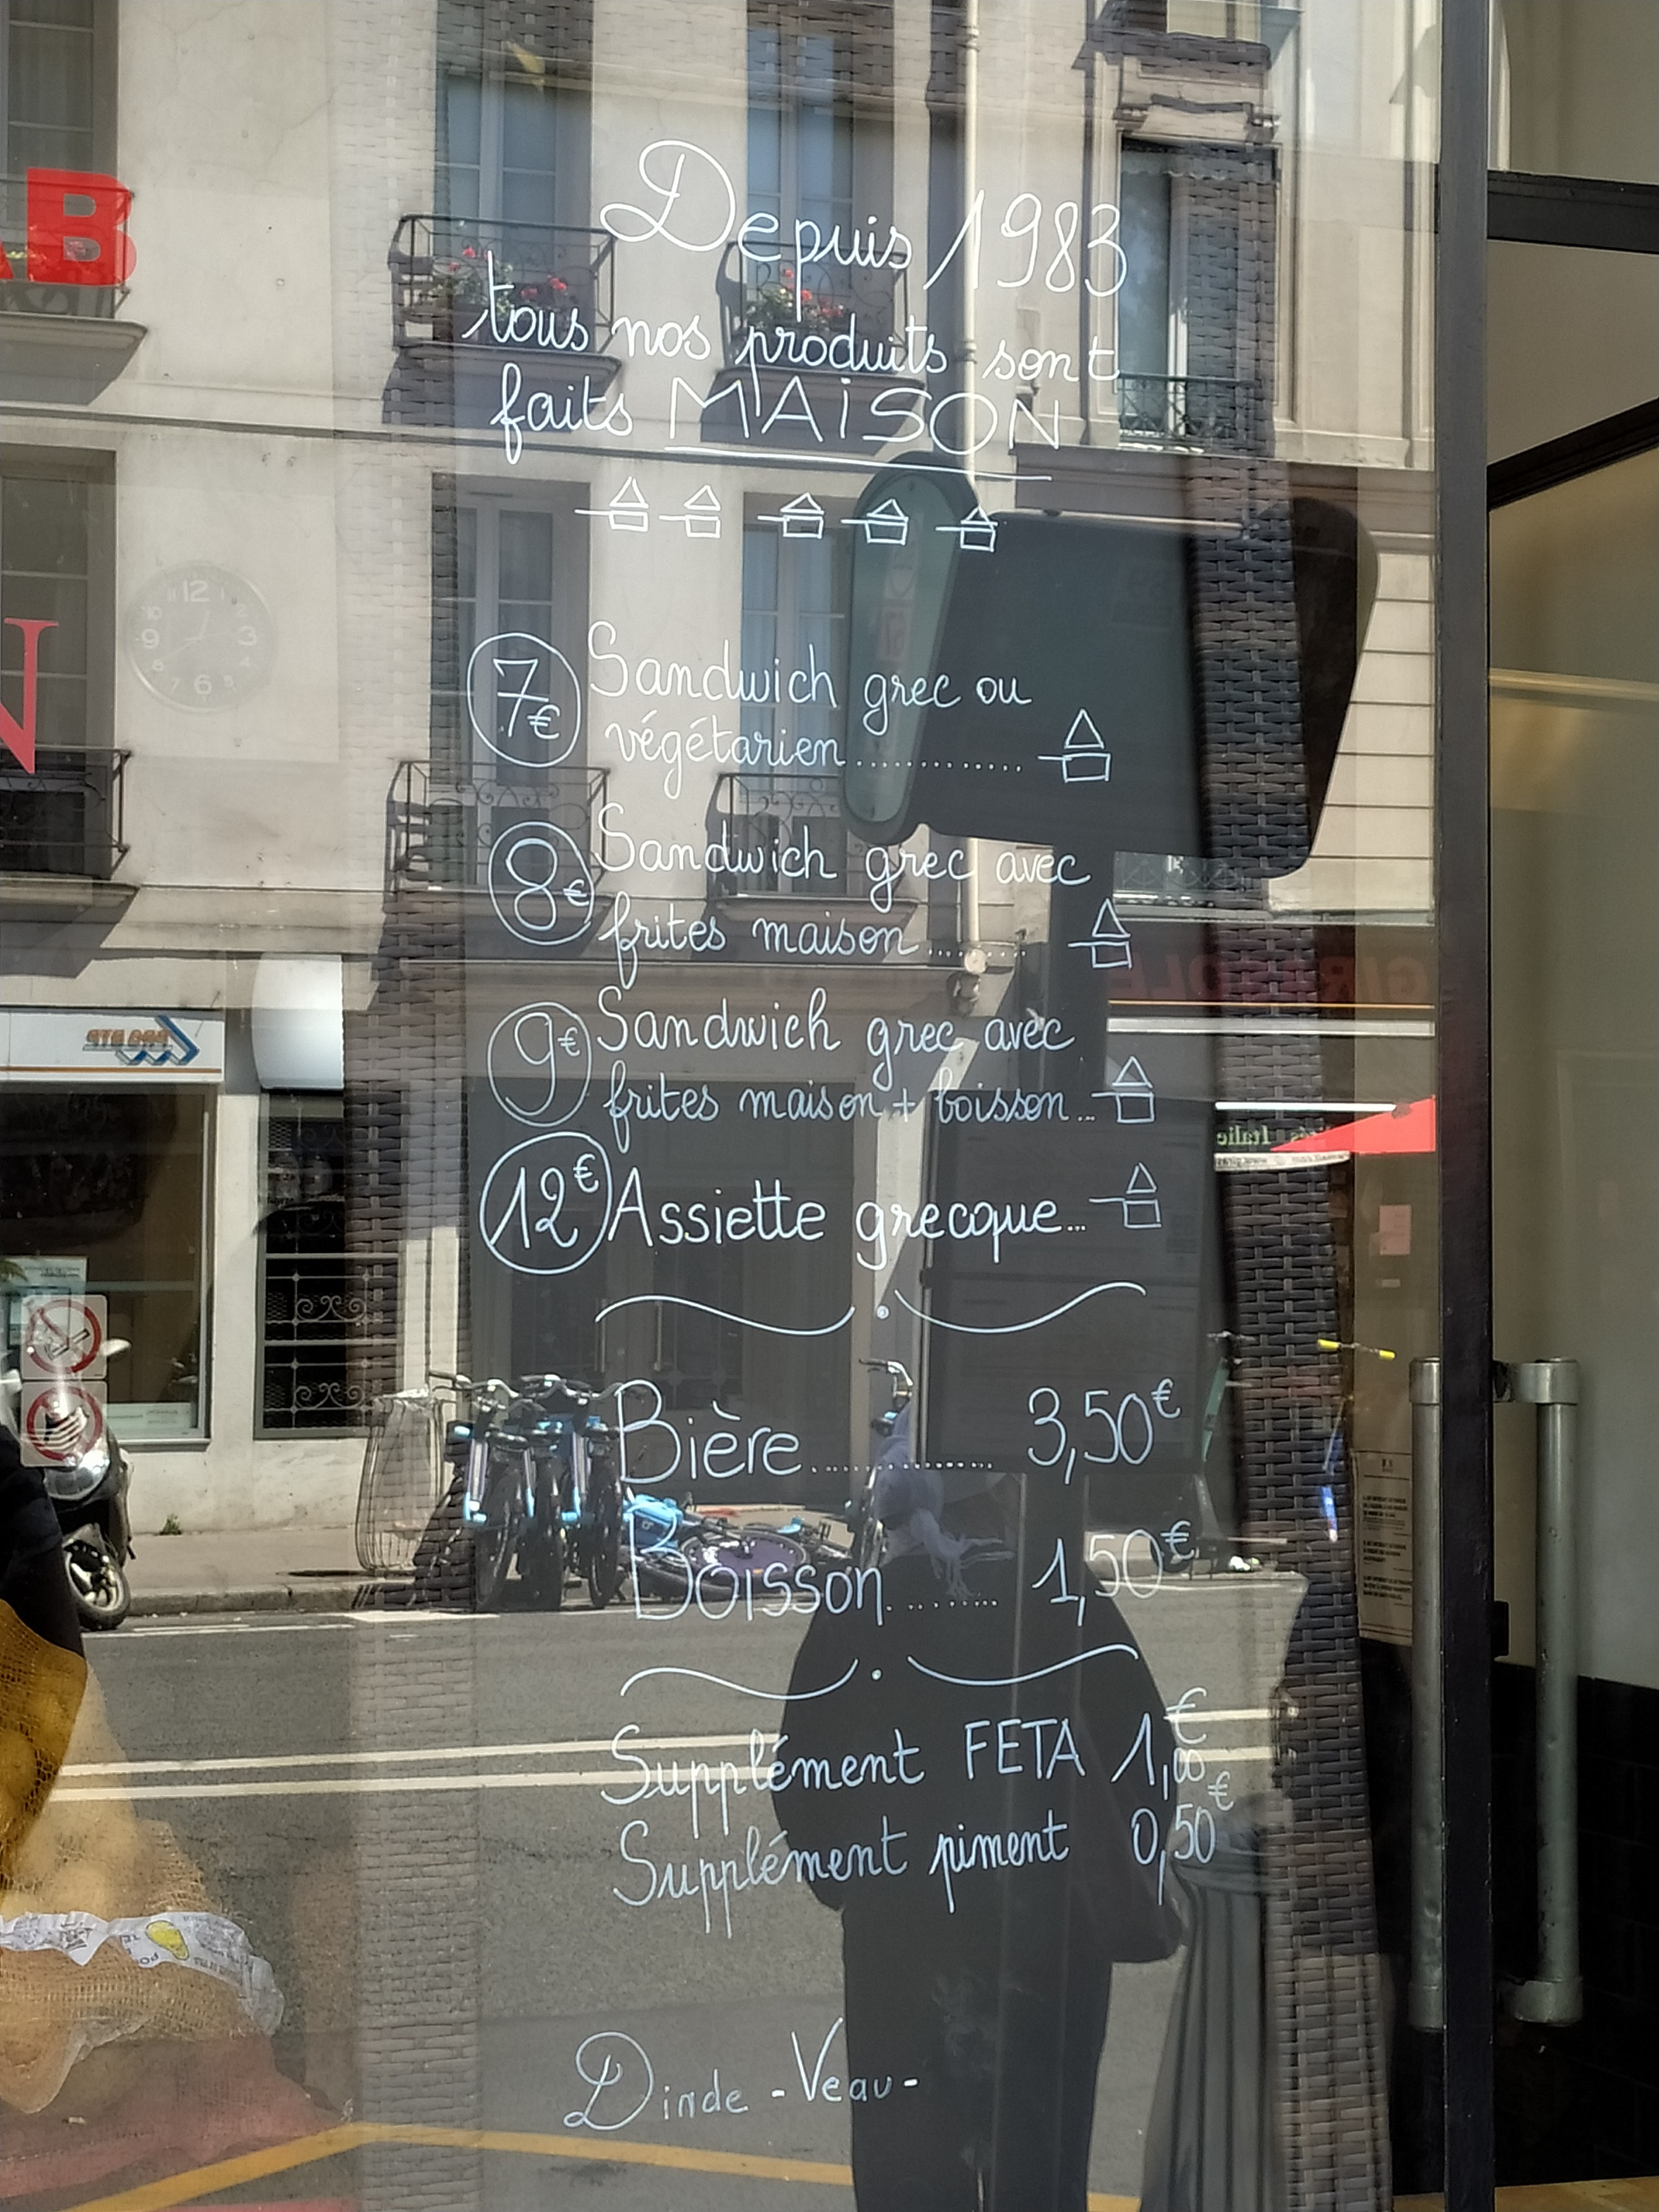 Depuis 1983
tous nos produits sont
faits MAiSON
7€ Sandwich grec ou
végétarien.............
8€ Sandwich grec avec
frites maison..........
9€ Sandwich grec avec
frites maison + boisson...
12€ Assiette grecque...
Bière................ 3,50€
Boisson......... 1,50€
Supplément FETA 1,00€
Supplément piment 0,50€
Dinde - Veau -
AB
N
12
3
6
9